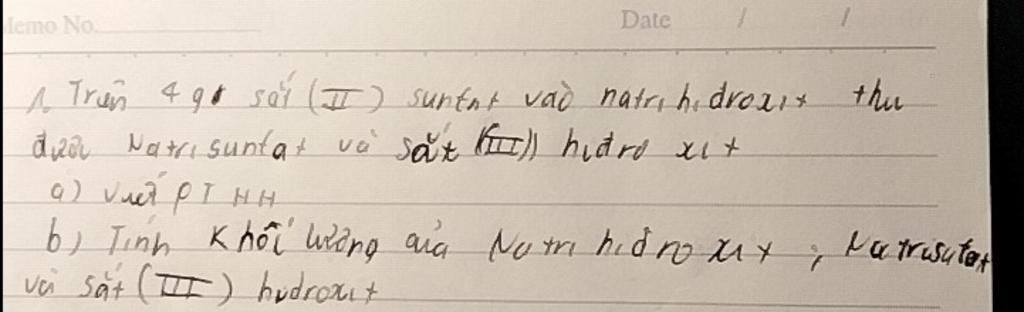 Memo No. Date / /
1. Trộn 4 gr sắt (II) sunfat vào natri hidroxit thu
được Natri sunfat và sắt (III) hidro xit
a) viết PT HH
b) Tính Khối lượng của Natri hidro xit ; Natrisufat
và sắt (III) hidroxit